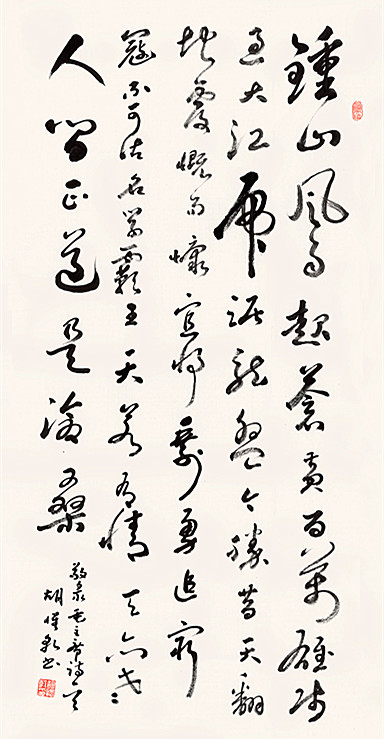 鍾山風雨起蒼黃百萬雄師
過大江虎踞龍盤今勝昔天翻
地覆慨而慷宜將剩勇追窮
寇不可沽名學霸王天若有情天亦老
人間正道是滄桑
敬录毛主席詩一首
胡 书